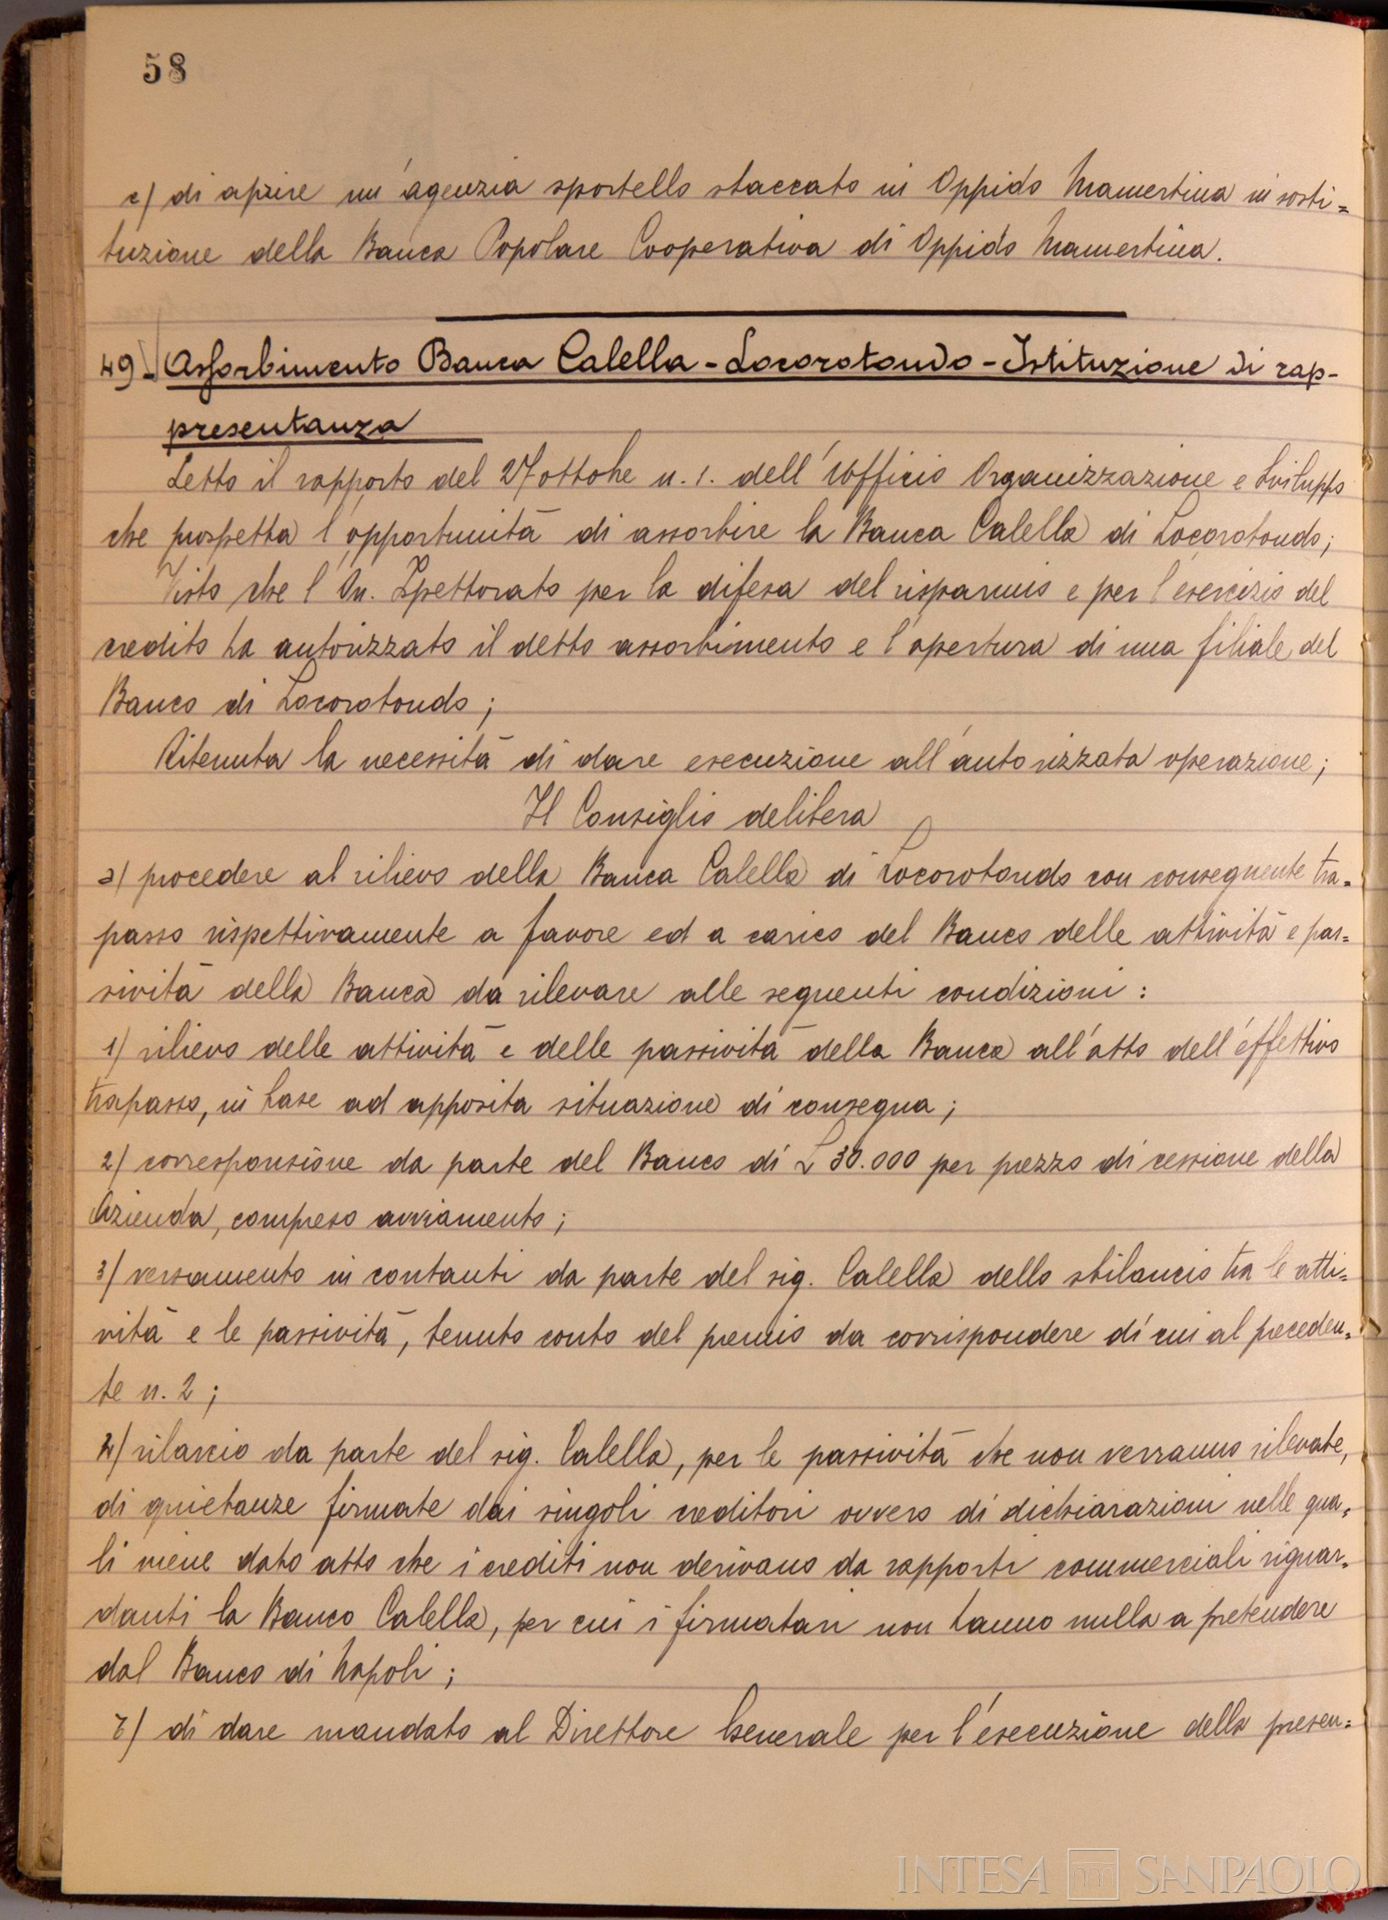 58
c) di aprire un'agenzia sportello staccato in Oppido Mamertina in sosti=
tuzione della Banca Popolare Cooperativa di Oppido Mamertina.
49- Assorbimento Banca Calella - Locorotondo - Istituzione di rap-
presentanza
Letto il rapporto del 27 ottobre n. 1. dell'Ufficio Organizzazione e Sviluppo
che prospetta l'opportunità di assorbire la Banca Calella di Locorotondo;
Visto che l'On. Ispettorato per la difesa del risparmio e per l'esercizio del
credito ha autorizzato il detto assorbimento e l'apertura di una filiale del
Banco di Locorotondo;
Ritenuta la necessità di dare esecuzione all'autorizzata operazione;
Il Consiglio delibera
a) procedere al rilievo della Banca Calella di Locorotondo con conseguente tra=
passo rispettivamente a favore ed a carico del Banco delle attività e pas=
sività della Banca da rilevare alle seguenti condizioni:
1) rilievo delle attività e delle passività della Banca all'atto dell'effettivo
trapasso, in base ad apposita situazione di consegna;
2) corresponsione da parte del Banco di L 30.000 per prezzo di cessione della
Azienda, compreso avviamento;
3) versamento in contanti da parte del sig. Calella dello sbilancio tra le atti=
vità e le passività, tenuto conto del premio da corrispondere di cui al preceden=
te n. 2;
4) rilascio da parte del sig. Calella, per le passività che non verranno rilevate,
di quietanze firmate dai singoli creditori ovvero di dichiarazioni nelle qua=
li viene dato atto che i crediti non derivano da rapporti commerciali riguar=
danti la Banco Calella, per cui i firmatari non hanno nulla a pretendere
dal Banco di Napoli;
b) di dare mandato al Direttore Generale per l'esecuzione della presen=
INTESA SANPAOLO